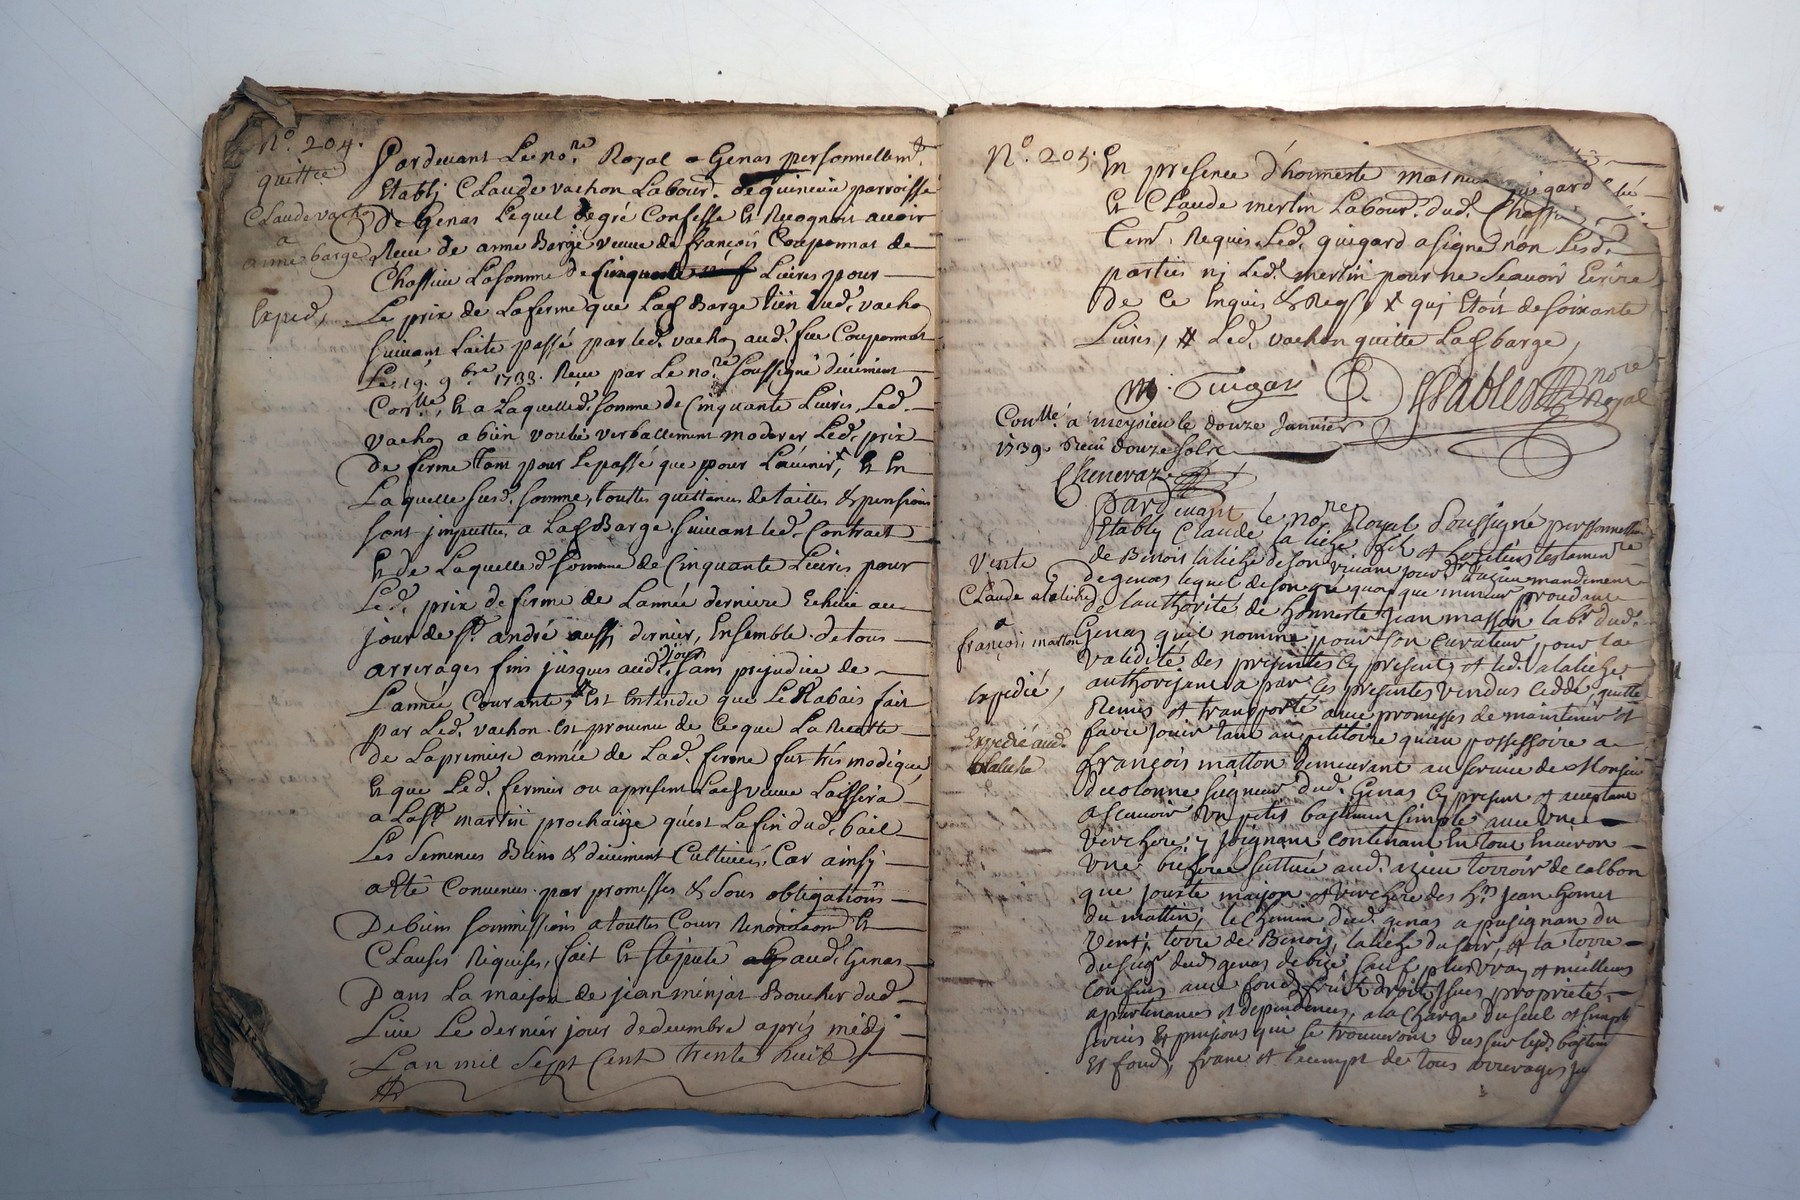 N.º 204.
quittce
Claude vach
a
anne barge
Exped,
Pardevant Le no.re Royal a Genas personnellem.t
Etablj Claude vachon Labour.r de quincieu parroisse
De Genas Lequel de gré Confesse Et Recognoit avoir
Receu de anne Barge veuve de françois Couponnat de
Chassieu La somme de Cinquante Livres pour
Le prix de La ferme que Lad Barge tien dud. vachoṇ
suivant L'acte passé par led. vachoṇ aud. feu Couponnat
Le 19. 9.bre 1733. Receu par Le no.re soussigné deüement
Con.llé, Et a Laquelle d. somme de Cinquante Livres, Led.
vachoṇ a bien voulu verballement moderer Led. prix
de ferme tant pour Le passé que pour L'avenir, x Et En
Laquelle susd. somme, touttes quittances de tailles & pensions
sont jmputtées a Lad Barge suivant led. Contract
Et de Laquelle d somme de Cinquante Livres pour
Led. prix de ferme de L'année derniere Echüe au
jour de St. andré aussi dernier, Ensemble de tous
arrerages fins jusques aud. jour sans prejudice de
L'année Courante, Est Entendu que Le Rabais fait
par Led. vachon Est provenu de Ce que La Recolte
de La premiere année de Lad. ferme fut trés modique
Et que Led. fermier ou apresent Lad veuve Laissera
a La st martin prochaine qu'est La fin dud. bail
Les Semences Bien & deüement Cultivées, Car ainsy
a Eté Convenus par promesses & sous obligations
De biens soummissions a touttes Cours Renonciaõn Et
Clauses Requises, fait Et stipulé aud. Genas
Dans La maison de jean minjat Boucher dud
Lieu Le dernier jour de decembre aprés midj
L'an mil sept Cent trente huit
N.º 205.
En presence d'honneste guigard
Et Claude merlin Labour.r dud. Chassieu
Requis Led. guigard a signé non Lesd.
parties nj Led. merlin pour ne sçavoir Ecrire
de Ce Enquis & Reqs x quj Etoit de soixante
Livres, # Led. vachon quitte Lad barge,
no.re
Royal
Con.llé a meysieu le douze Janvier
1739. Receu douze sols
Chenevaz
Vente
Claude alaliche
a
françois matton
Expedié,
Expedié aud.
alaliche
pardevant le no.re Royal soussigné personnellem
Etably Claude la liche fils et heritier testamen.re
de Benoit laliche de son vivant d'azieu mandement
de genas lequel de son gré quoy que mineur procedant
de l'authorité de honneste jean masson lab.r dud.
Genas qu'il nomme pour son curateur pour la
validité des presentes Cy present et led. alaliche
authorisant a par Ces presentes vendus Ceddé, quitté
Remis et transporté avec promesses de maintenir et
faire jouir tant au petitoire qu'au possessoire a
françois matton demeurant au service de Monsieur
seigneur dud. Genas Cy present et acceptant
a scavoir un petit bastiment simple avec une
verchere y joignant contenant En tout Environ
une scittuée aud. azieu terroir de
que jouxte maison et verchere des h.rs jean
du mattin, le chemin dud. genas a pusignan du
vent, terre de Benoit laliche du soir, et la terre
du seig.r dud. genas de bize, sauf plus vray et meilleurs
confins avec fond, fruits droits jssues proprieté,
apartenances et dependences, a la charge du seul et simple
servis & pensions qui se trouveront dus sur led. bastim
Et fond, franc et Exempt de tous arrerages